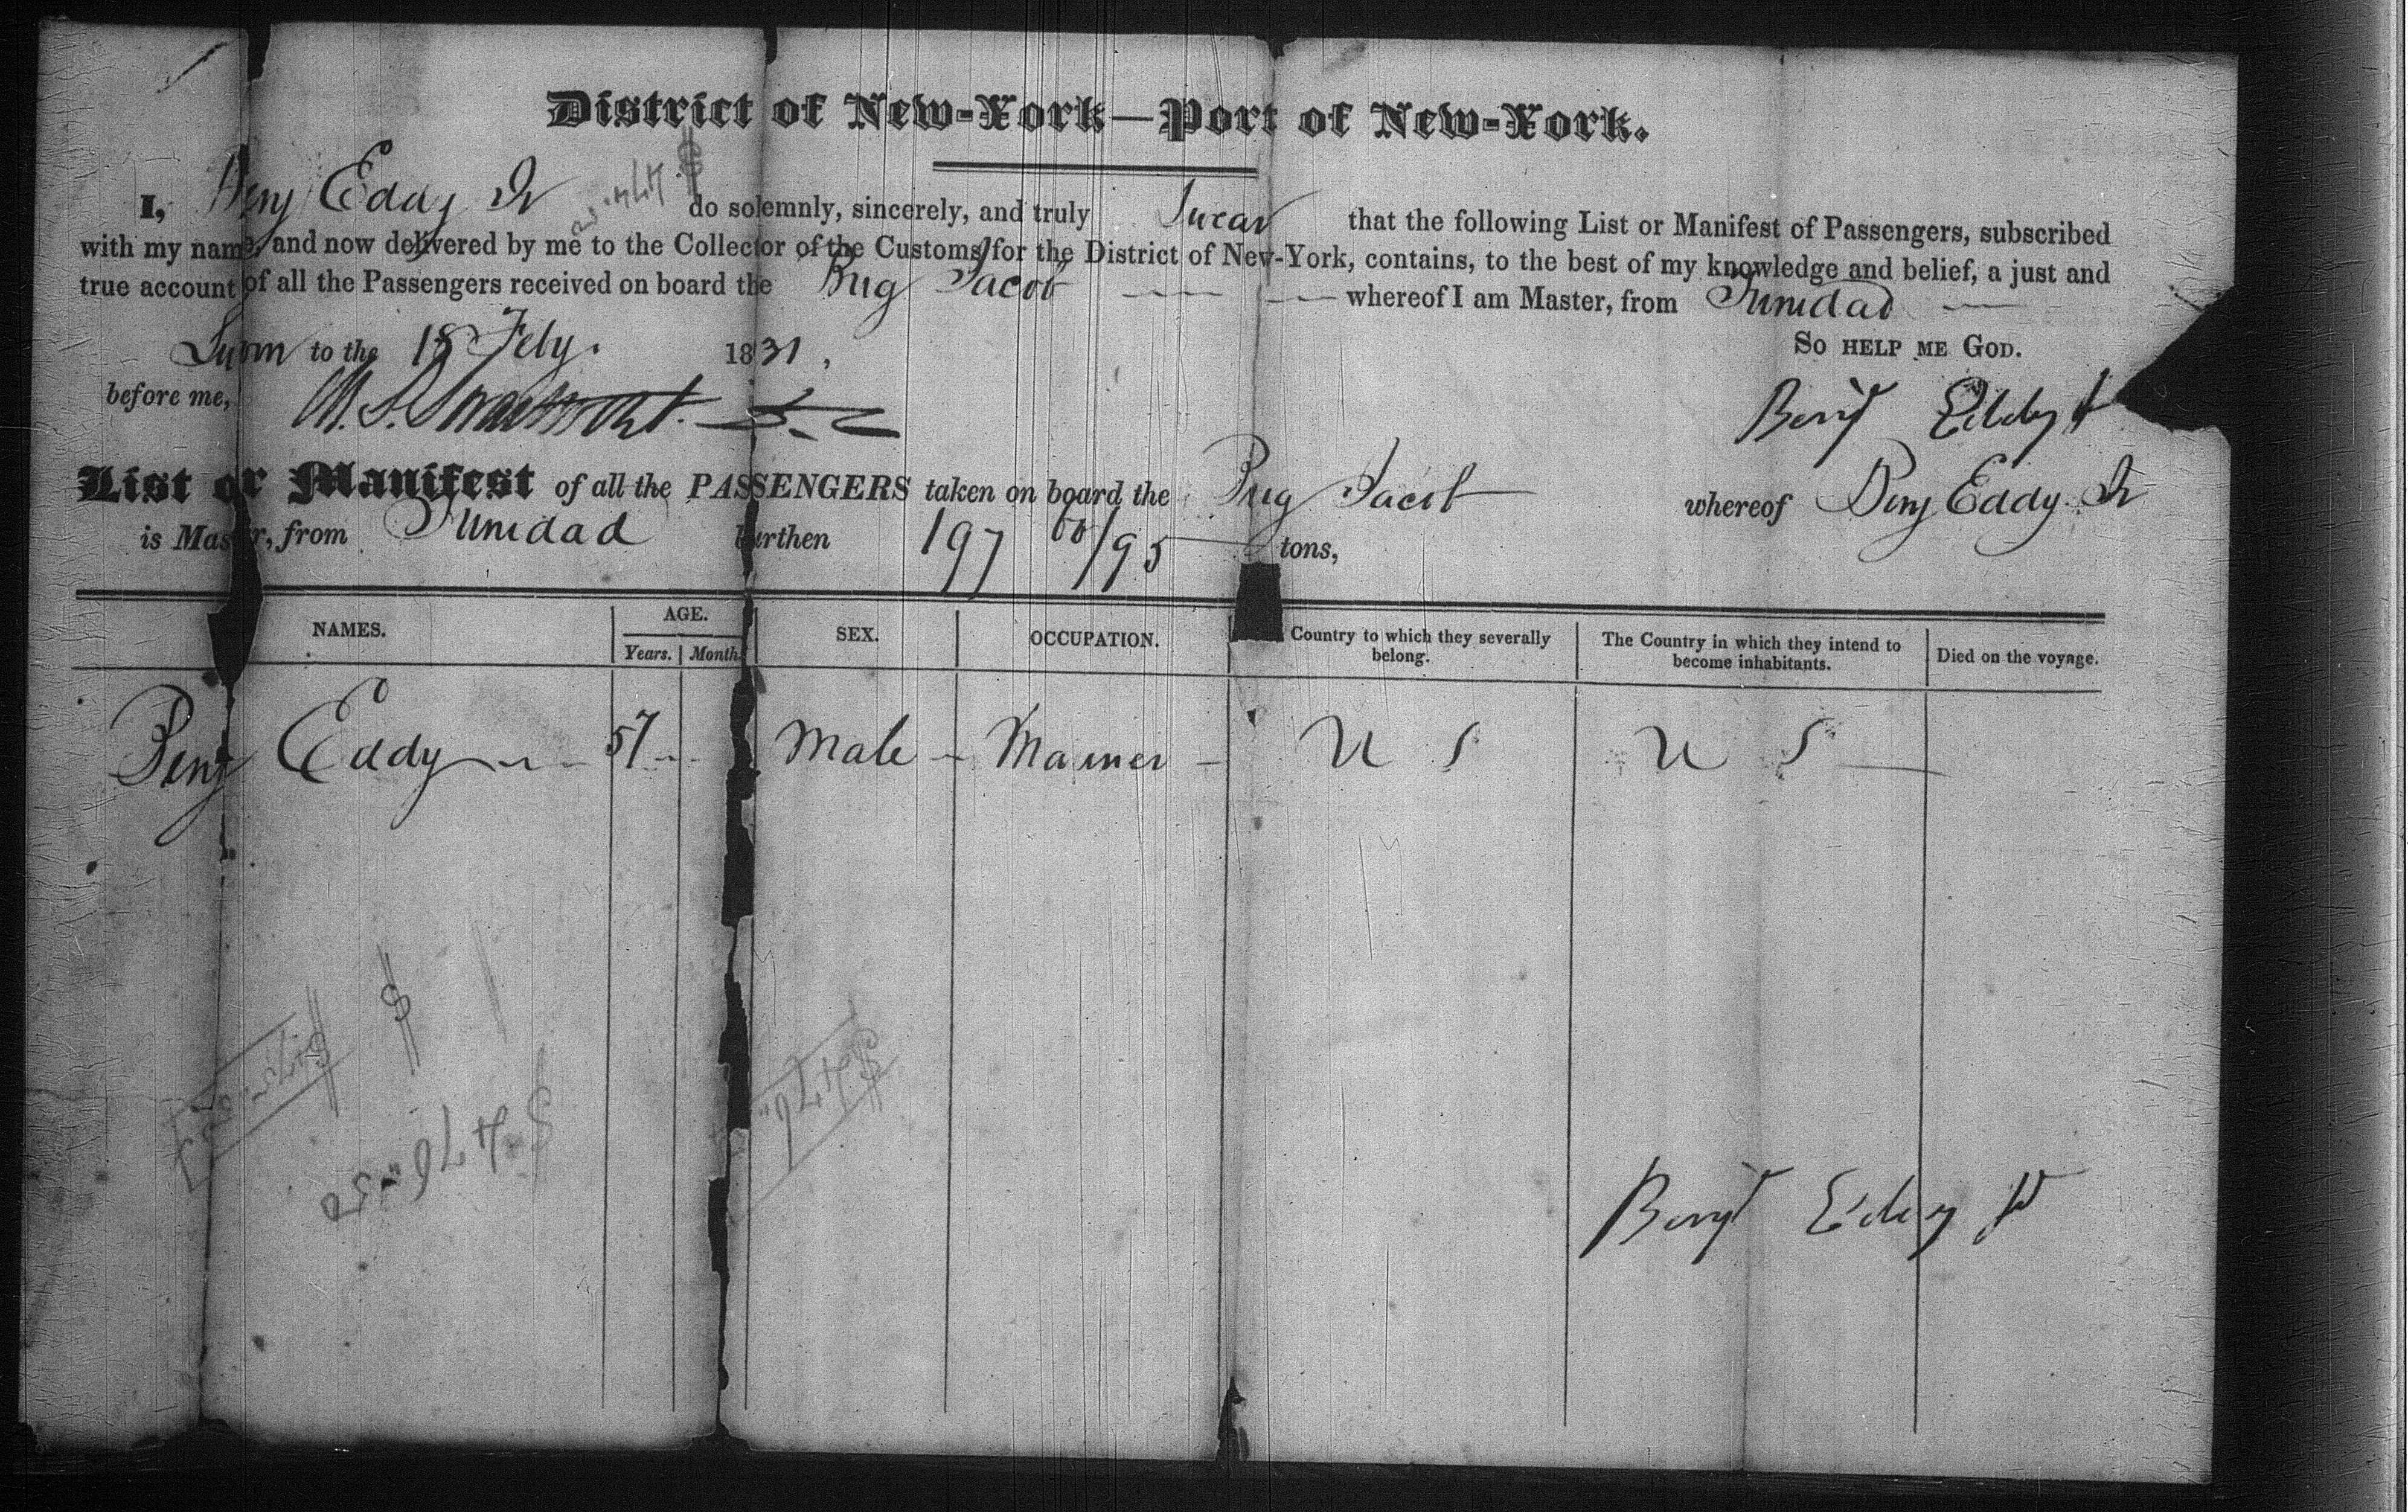 District of New-York—Port of New-York.
I, Benj Eddy Jr do solemnly, sincerely, and truly Swear that the following List or Manifest of Passengers, subscribed
with my name, and now delivered by me to the Collector of the Customs for the District of New-York, contains, to the best of my knowledge and belief, a just and
true account of all the Passengers received on board the Brig Jacob whereof I am Master, from Trinidad
Sworn to the 18 Feby. 1831, So HELP ME GOD.
before me, Benj Eddy Jr
List or Manifest of all the PASSENGERS taken on board the Brig Jacob whereof Benj Eddy Jr
is Master, from Trinidad burthen 197 /95 tons,
NAMES. AGE. SEX. OCCUPATION. Country to which they severally belong. The Country in which they intend to become inhabitants. Died on the voyage.
Years. Month
Benj Eddy 57 Male Mariner U S U S
$476"50
$476"
Benj Eddy Jr